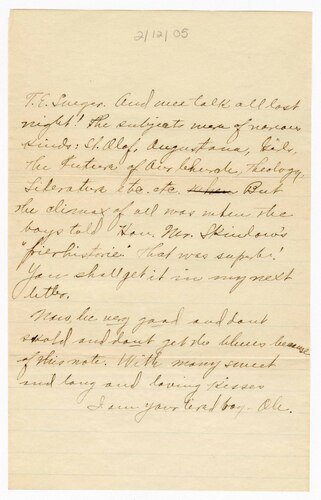 2/12/05
T. E. And we talk all last
night! The subjects were of various
kinds: St. Olaf, Augustana, Girls,
the Future of Our Church, Theology,
Literature etc. etc. But
the climax of all was when the
boys told Hon. Mr. Skinlow's
"frierhistorie" that was superb!
You shall get it in my next
letter.
Now, be very good and dont
scold and dont get the blues because
of this note. With many sweet
and long and loving kisses
I am your tired boy. Ole.